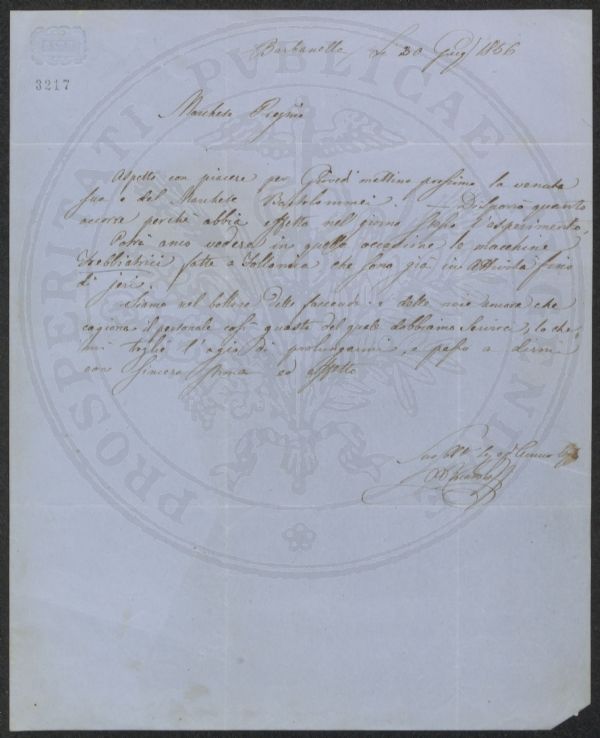 3217
Barbanella li 20 Giug.º 1856
Marchese Pregmo
Aspetto con piacere per Giovedì mattina prossimo la venuta
sua e del Marchese Bartolommei. Disporrò quanto
occorre perchè abbia effetto nel giorno stesso l'esperimento.
Potrà anco vedere in quella occasione le macchine
Trebbiatrici fatte a Follonica che sono già in Attività fino
di jeri.
Siamo nel bollore delle faccende e delle noie ancora che
cagiona il personale così guasto del quale dobbiamo servirci, lo che
mi toglie l'agio di prolungarmi, e passo a dirmi
con sincera stima ed affetto
Suo
PROSPERITATI PUBLICAE